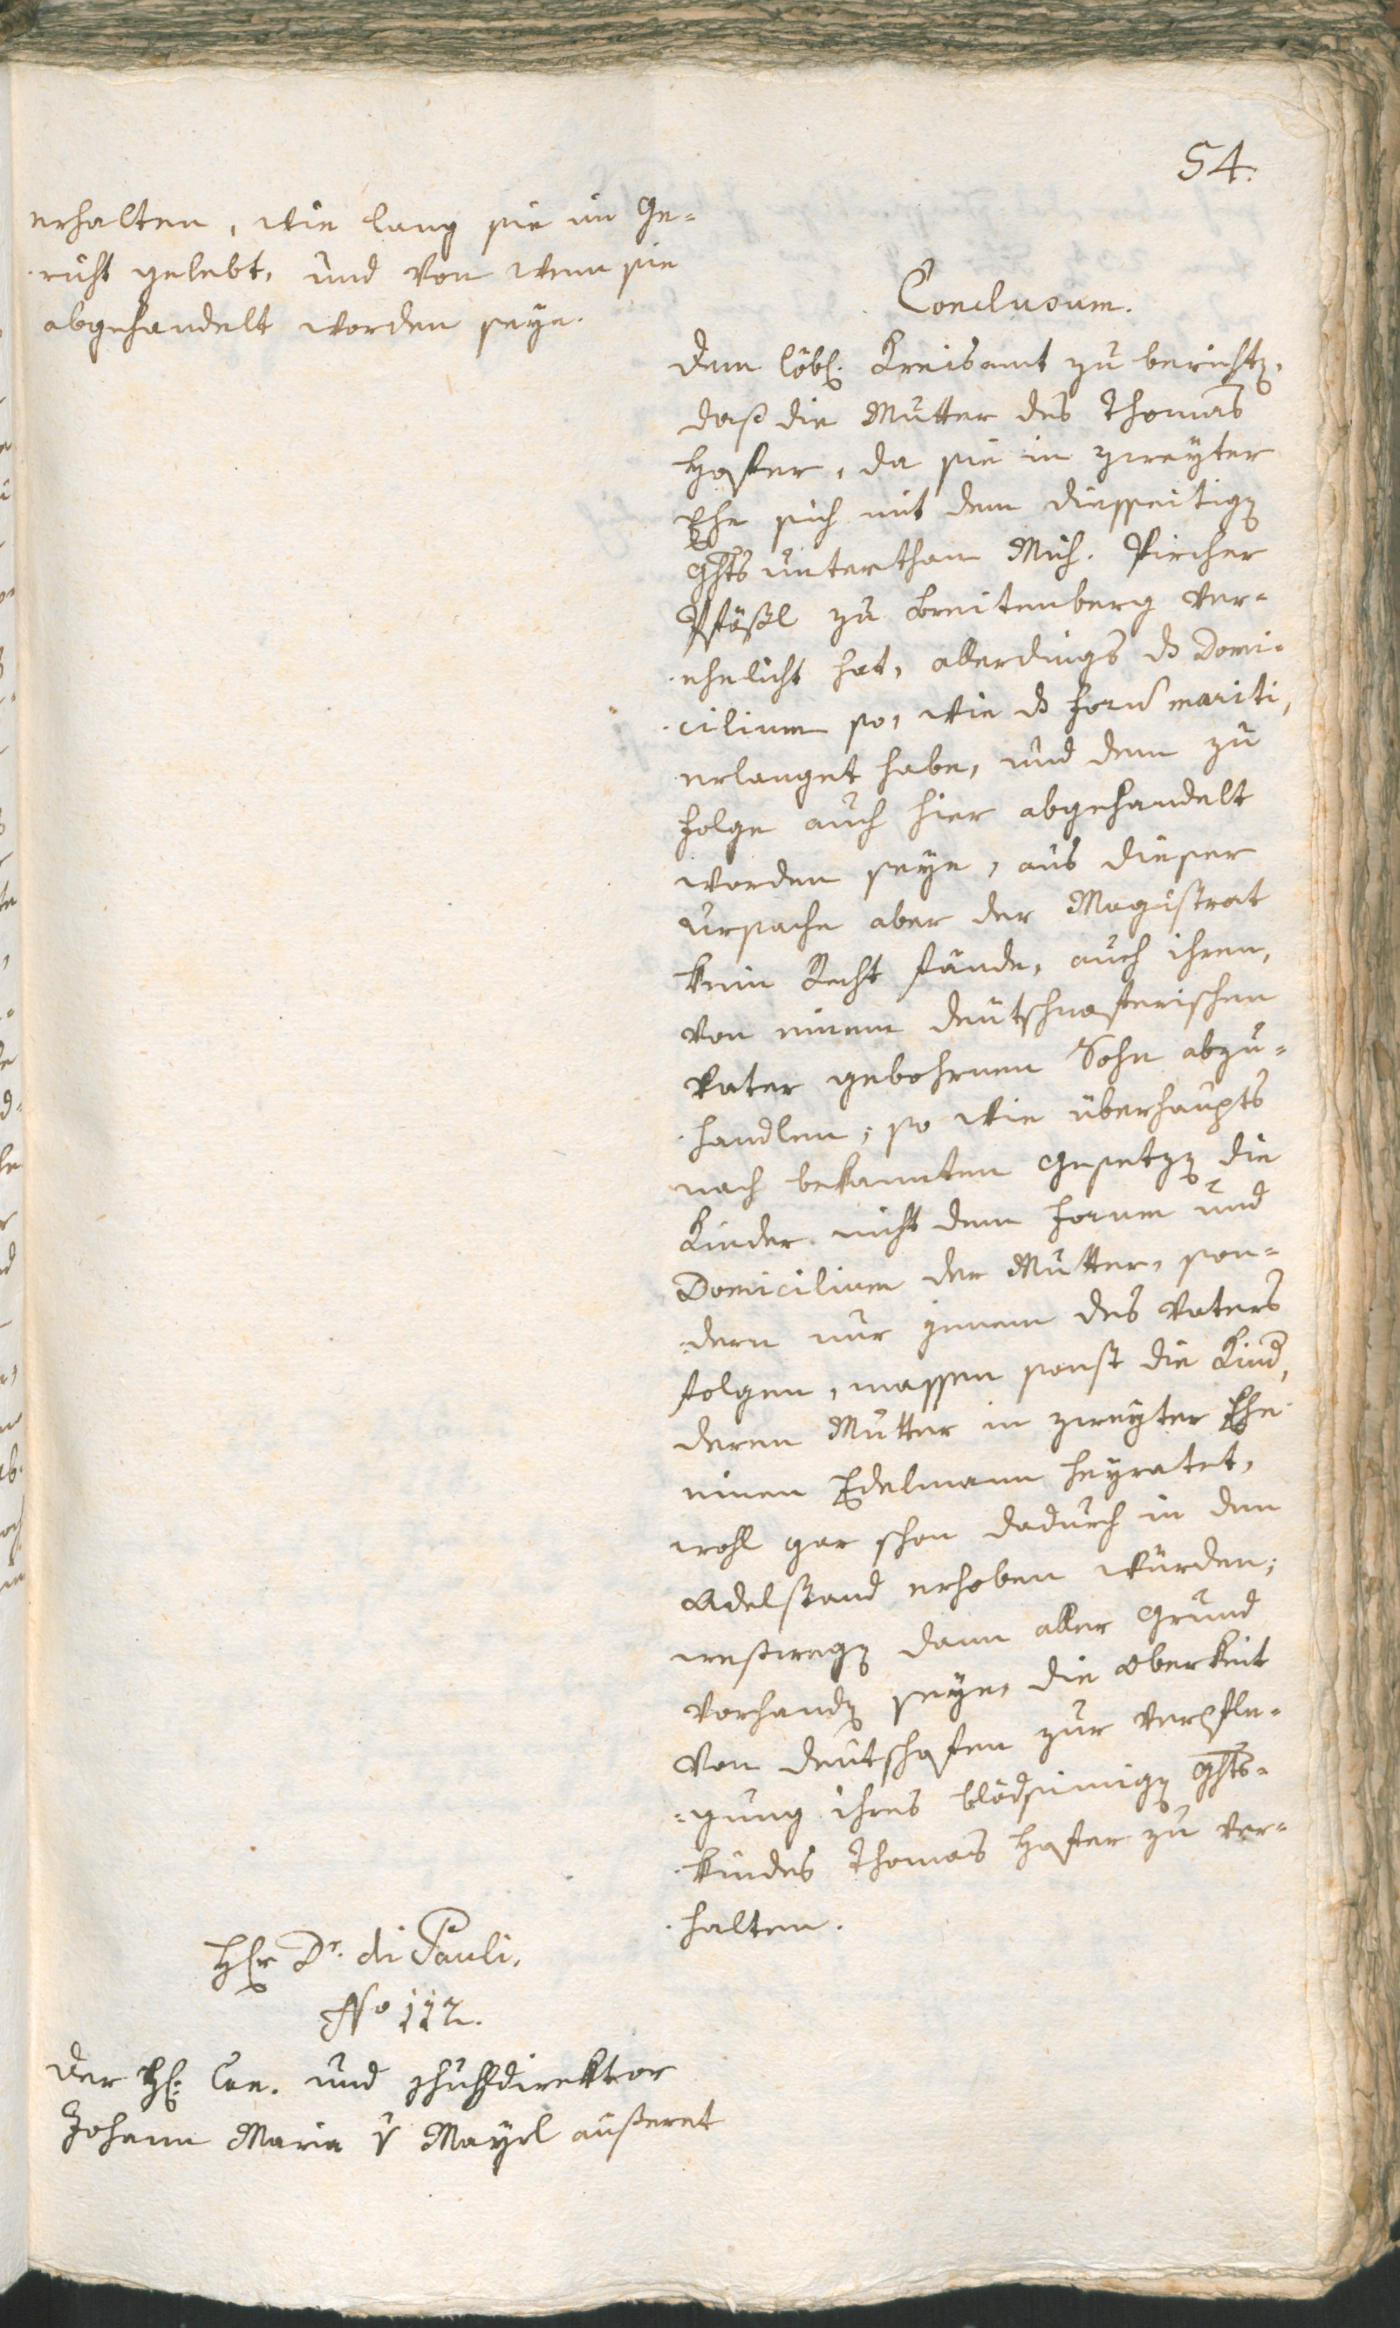 54.
erhalten, wie lang sie im Ge-
-richt gelebt, und von wem sie
abgehandelt worden seye.
Conclusum.
dem löbl. Kreisamt zu bericht,
daß die Mutter des Thomas
Hofer, da sie in zweyter
Ehe sich mit dem diesseitig
Ghts unterthan Mich. Pircher
Pföstl zu Breitenberg ver-
-ehelicht hat, allerdings ds Domi-
-cilium so, wie ds foru mariti,
erlanget habe, und dem zu
folge auch hier abgehandelt
worden seye, aus dieser
Ursache aber der Magistrat
kein Recht fände, auch ihren,
von einem deutschnoferischen
Vater gebohrnen Sohn abzu-
-handlen; so wie überhaupts
nach bekannten Gesetz die
Kinder nicht dem forum und
Domicilium der Mutter, son-
-dern nur jenem des Vaters
folgen, massen sonst die Kind,
deren Mutter in zweyter Ehe
einen Edelmann heyratet,
wohl gar schon dadurch in den
Adelstand erhoben würden;
weßweg dann aller Grund
vorhand seye, die Oberkeit
von deutschofen zur Verpfle-
-gung ihres blödsinnig Ghts-
-kindes Thomas Hofer zu ver-
-halten.
Hr Dr. di Pauli.
No 112.
der H. Con. und Schuldirektor
Johann Maria v Mayrl äußeret